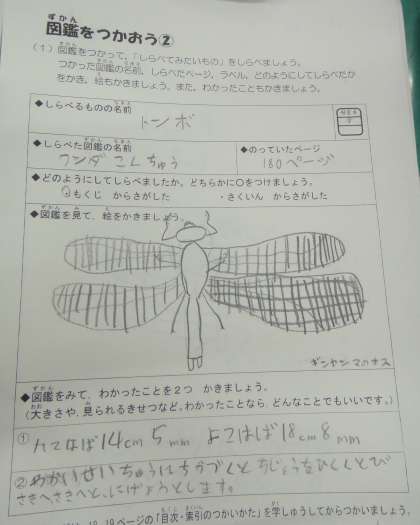 図鑑をつかおう②
(1) 図鑑をつかって、「しらべてみたいもの」をしらべましょう。
つかった図鑑の名前、しらべたページ、ラベル、どのようにしてしらべたか
をかき、絵もかきましょう。また、わかったこともかきましょう。
◆しらべるものの名前
トンボ
◆しらべた図鑑の名前
ワンダ こんちゅう
◆のっていたページ
180ページ
◆どのようにしてしらべましたか。どちらかに○をつけましょう。
もくじ からさがした ・さくいん からさがした
◆図鑑を見て、絵をかきましょう。
ギンヤンマ オス
◆図鑑をみて、わかったことを２つ かきましょう。
(大きさや、見られるきせつなど。わかったことなら、どんなことでもいいです。)
① たてはば14cm 5mm よこはば18cm 8mm
② わかいせいちゅうにちかづくと ちじょうをひくくとび
さきへさきへと、にげようとします。
ページの「目次・索引のつかいかた」を学しゅうしてからつかいましょう。